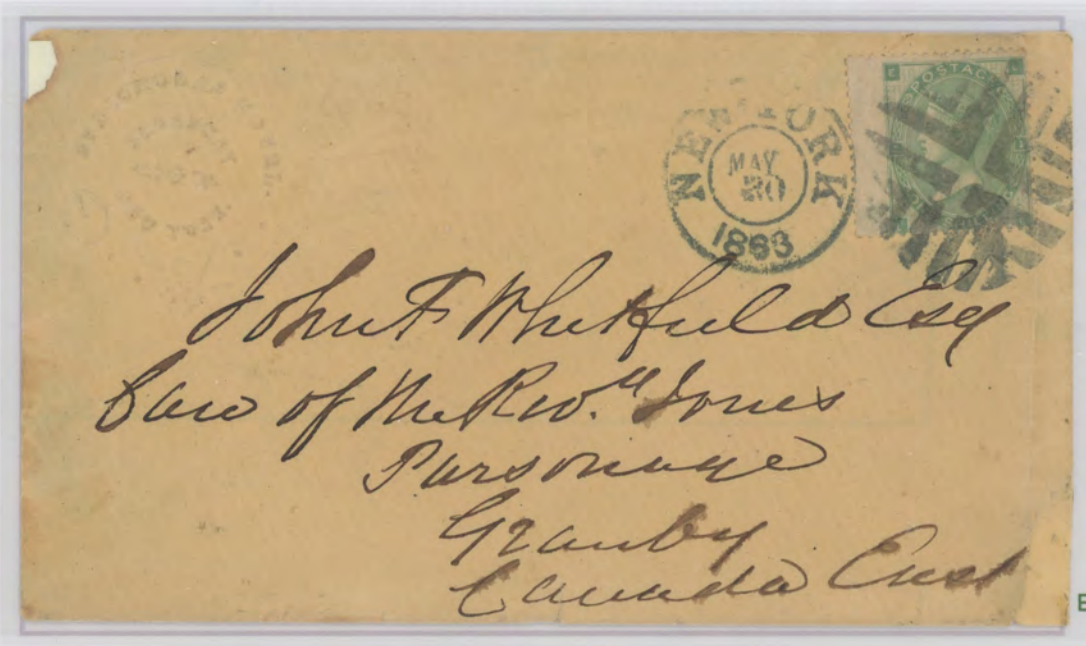 NEW YORK
MAY
30
1863
POSTAGE
John F Whitfield Esq
Care of the Revd Jones
Parsonage
Granby
Canada East
E